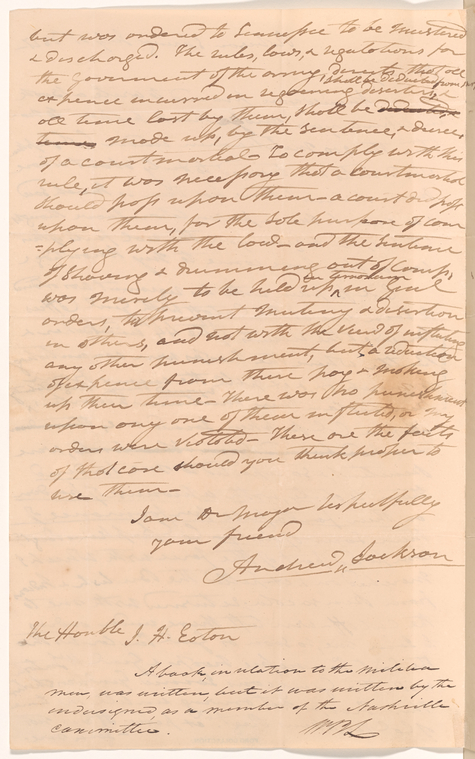 but was ordered to Tennessee to be mustered
& discharged. The rules, laws, & regulations for
the government of the army directs that all
shall be deducted from pay,
expence incurred in regaining deserters, &
all time lost by them, shall be
made up, by the sentence, & decree
of a court martial. To comply with this
rule, it was necessary that a court martial
should pass upon them – a court did pass
upon them, for the sole purpose of com
=plying with the law – and the sentence
of shaving & drumming out of camp,
was merely to be held up, in
orders, to prevent mutiny & desertion
in others, and not with the view of inflicting
any other punishment, but a deduction
of expence from their pay & making
up their time – there was no punishment
upon any one of them inflicted, or my
orders were violated – These are the facts
of that case should you think proper to
use them –
I am Dr Major respectfully
your friend
Andrew Jackson
The Honble J. H. Eaton
A book, in relation to the militia
men, was written, but it was written by the
undersigned, as a member of the Nashville
committee.
WBL